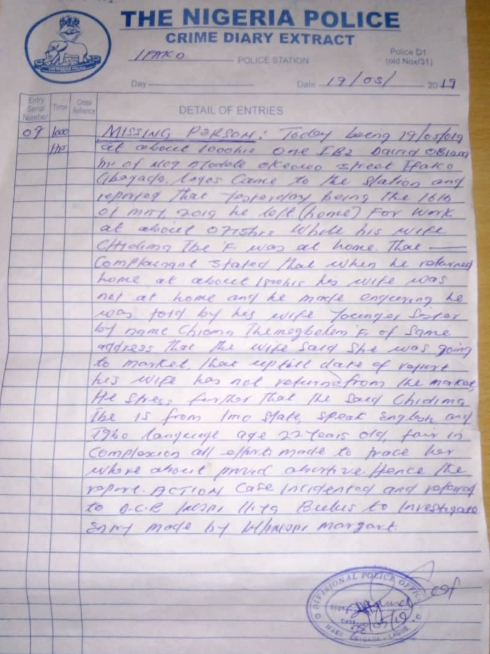 THE NIGERIA POLICE
CRIME DIARY EXTRACT
IPAKO POLICE STATION
Police D1
(old Nox/31)
Day Date 19/05/ 2019
Entry Serial Number Time Cross Refrence DETAIL OF ENTRIES
09 1000 MISSING PERSON: Today being 19/05/019
hrs at about 1000hrs One David
hr of No9 Street Ipako
Gbagada, Lagos Came to the Station and
reported that Yesterday being the
of May 2019 he left (home) For work
at about 0715hrs While his wife
Chidima Ibe 'F' was at home That
Complainant Stated that when he returned
home at about his wife was
not at home and he made enquiring he
was told by his wife Younger Sister
by name Chioma 'F' of Same
address that the wife Said She was going
to market, that uptill date of report
his wife has not return from the market
He Stress further that the Said Chidima
Ibe is from Imo State, Speak English and
Igbo language age 22 Years old, fair in
Complexion all effort made to trace her
where about proved abortive Hence the
report. ACTION Case Incidented and referred
to D.C.B to Investigate
Entry made by Margart
DIVISIONAL POLICE OFFICER